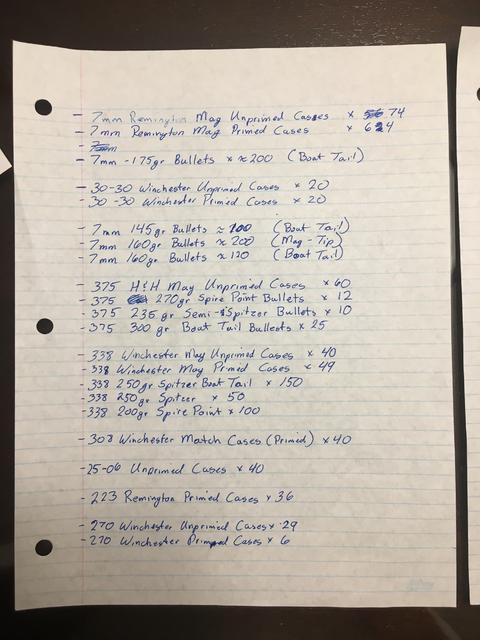 - 7mm Remington Mag Unprimed Cases x 74
- 7mm Remington Mag Primed Cases x 64
- 7mm
- 7mm - 175gr Bullets x ≈200 (Boat Tail)
- 30-30 Winchester Unprimed Cases x 20
- 30-30 Winchester Primed Cases x 20
- 7mm 145gr Bullets ≈ 100 (Boat Tail)
- 7mm 160gr Bullets ≈ 200 (Mag-Tip)
- 7mm 160gr Bullets ≈ 120 (Boat Tail)
- 375 H&H Mag Unprimed Cases x 60
- 375 270gr Spire Point Bullets x 12
- 375 235gr Semi-Spitzer Bullets x 10
- 375 300 gr Boat Tail Bulleots x 25
- 338 Winchester Mag Unprimed Cases x 40
- 338 Winchester Mag Primed Cases x 49
- 338 250gr Spitzer Boat Tail x 150
- 338 250gr Spitzer x 50
- 338 200gr Spire Point x 100
- 308 Winchester Match Cases (Primed) x 40
- 25-06 Unprimed Cases x 40
- 223 Remington Primed Cases x 36
- 270 Winchester Unprimed Cases x 29
- 270 Winchester Primed Cases x 6